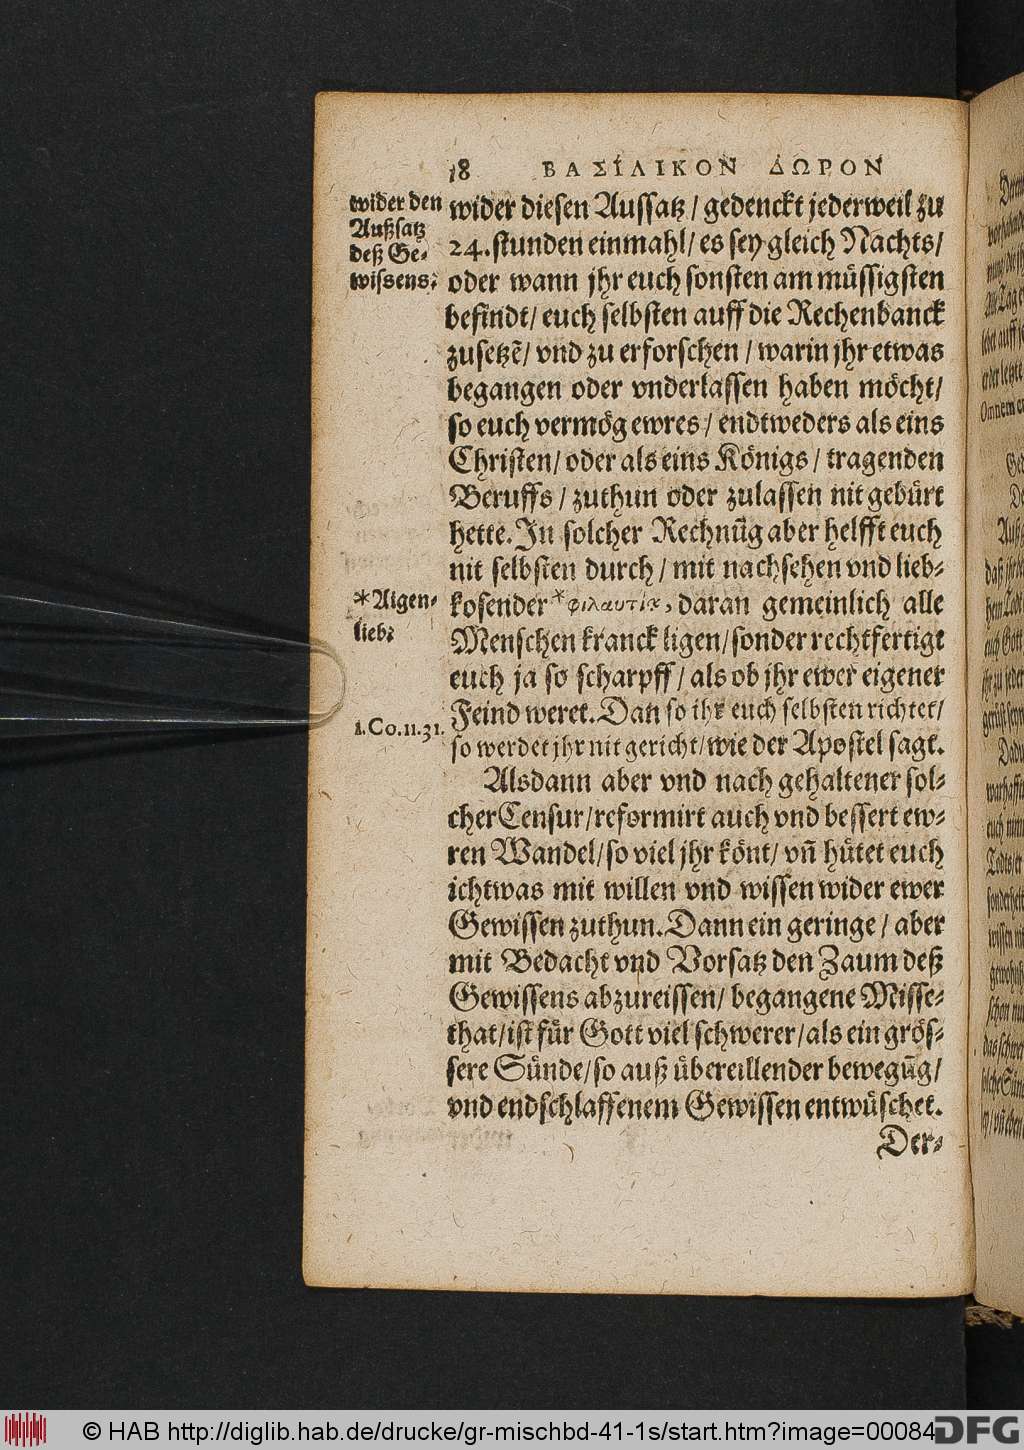 18 ΒΑΣΙΛΙΚΟΝ ΔΩΡΟΝ
wider den
Außsatz
deß Ge-
wissens:
wider diesen Aussatz / gedenckt jederweil zu
24. stunden einmahl / es sey gleich Nachts /
oder wann jhr euch sonsten am müssigsten
befindt / euch selbsten auff die Rechenbanck
zusetzẽ / vnd zu erforschen / warin jhr etwas
begangen oder vnderlassen haben möcht /
so euch vermög ewres / endtweders als eins
Christen / oder als eins Königs / tragenden
Beruffs / zuthun oder zulassen nit gebürt
hette. In solcher Rechnũg aber helfft euch
nit selbsten durch / mit nachsehen vnd lieb-
*Aigen-
lieb:
kosender *φιλαυτία, daran gemeinlich alle
Menschen kranck ligen / sonder rechtfertigt
euch ja so scharpff / als ob jhr ewer eigener
1. Co. 11. 31.
Feind weret. Dan so ihr euch selbsten richtet /
so werdet jhr nit gericht / wie der Apostel sagt.
Alsdann aber vnd nach gehaltener sol-
cher Censur / reformirt auch vnd bessert ew-
ren Wandel / so viel jhr könt / vñ hütet euch
ichtwas mit willen vnd wissen wider ewer
Gewissen zuthun. Dann ein geringe / aber
mit Bedacht vnd Vorsatz den Zaum deß
Gewissens abzureissen / begangene Misse-
that / ist für Gott viel schwerer / als ein grös-
sere Sünde / so auß übereillender bewegũg /
vnd endschlaffenem Gewissen entwüschet.
Der-
© HAB http://diglib.hab.de/drucke/gr-mischbd-41-1s/start.htm?image=00084
DFG